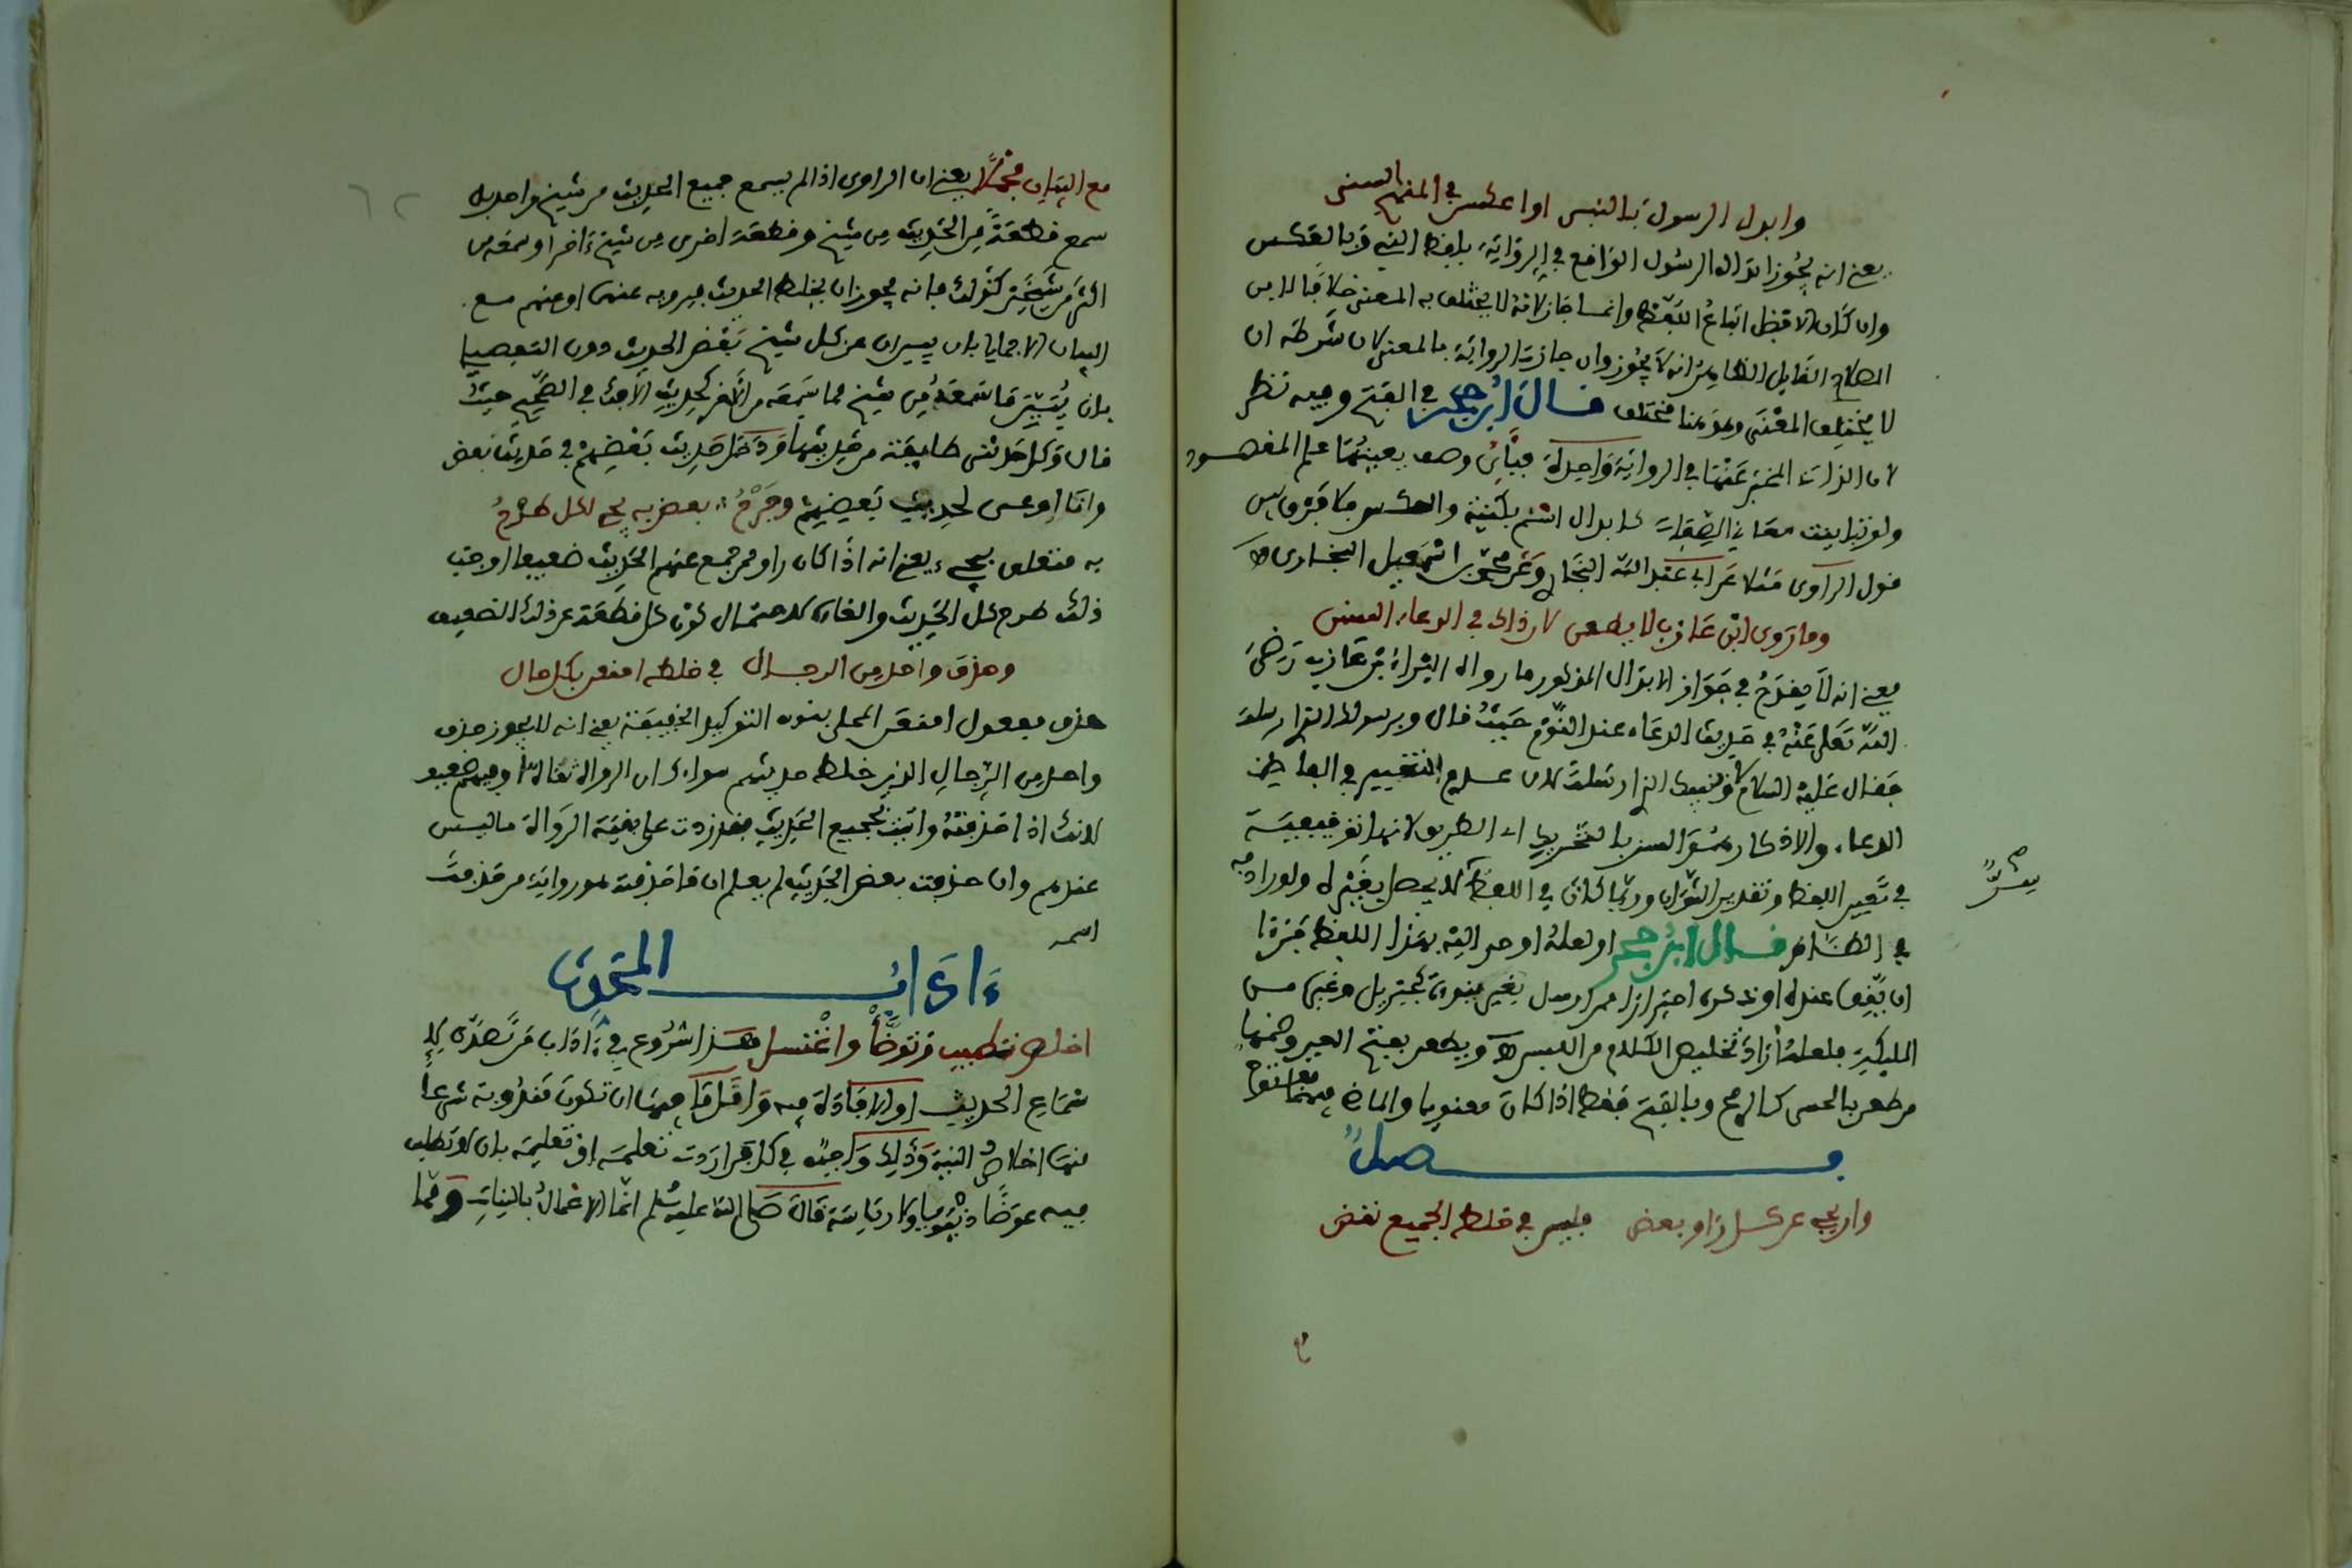 وابدل الرسول بالنبي او اعكس في المنهج السني
يعني انه يجوز ابدال الرسول الواقع في الرواية بلفظ النبي وبالعكس
وان كان الافضل اتباع اللفظ وانما جاز لانه لا يختلف به المعنى خلافا لابن
الصلاح القايل الظاهر انه لا يجوز وان جازت الرواية بالمعنى لان شرطه ان
لا يختلف المعنى وهو هنا مختلف فال ابن حجر في الفتح وفيه نظر
لان الذات المخبر عنها في الرواية واحدة فباي وصف يعينها علم المقصود
ولو تباينت معاني الصفات كابدال اسم بكنية والعكس فلا فرق بين
قول الراوي مثلا عن ابي عبد الله البخاري وعن محمد بن اسمعيل البخاري
وما روى ابن عازب لا يطعن لان ذاك في الدعاء السنن
يعني انه لا يقدح في جواز الابدال المذكور ما رواه البراء بن عازب رضي
الله تعلى عنه في حديث الدعاء عند النوم حيث قال وبرسولك الذي ارسلت
فقال عليه السلام لا ونبيك الذي ارسلت لان عدم التغيير في الفاظ
الدعاء والاذكار هو السنن بالتحريك اي الطريق لانها توقيفية
في تعيين اللفظ وتقدير الثواب وربما كان في اللفظ سر لا يحصل بغيره ولو رادفه
في الظاهر فال ابن حجر او لعله اوحي اليه بهذا اللفظ فرءا
ان يقف عنده او ذكره احترازا ممن ارسل بغير نبوة كجبريل وغيره من
المليكة فلعله اراد تخليص الكلام من اللبس ويطعن بفتح العين وضمها
من طعن بالحس كالرمح وبالفتح فقط اذا كان معنويا والماضي فيهما مفتوح
سر صح
فصل
وارو عن كل راو بعض فليس في خلط الجميع نقض
مع البيان مجملا يعني ان الراوي اذا لم يسمع جميع الحديث من شيخ واحد بل
سمع قطعة من الحديث من شيخ وقطعة اخرى من شيخ ءاخر او سمعه من
اكثر من شيخين كذلك فانه يجوز ان يخلط الحديث فيرويه عنهما او عنهم مع
البيان الاجمالي بان يبين ان عن كل شيخ بعض الحديث دون التفصيل
بان يبين ما سمعه من شيخ مما سمعه من الاخر كحديث الافك في الصحيح حيث
قال وكل حدثني طايفة من حديثها ودخل حديث بعضهم في حديث بعض
وانا اوعى لحديث بعضهم وجرح بعض به يجي لكل طرح
به متعلق بيجي يعني انه اذا كان راو ممن جمع عنهم الحديث ضعيفا اوجب
ذلك طرح كل الحديث والغاءه لاحتمال كون كل قطعة عن ذلك الضعيف
وحذف واحد من الرجال في خلطه امنعن بكل حال
حذف مفعول امنعن المحلى بنون التوكيد الخفيفة يعني انه لا يجوز حذف
واحد من الرجال الذين خلط حديثهم سواء كان الرواة ثقاة او فيهم ضعيف
لانك اذا حذفته واتيت بجميع الحديث فقد زدت على بقية الرواة ما ليس
عندهم وان حذفت بعض الحديث لم يعلم ان ما حذفت هو رواية من حذفت
اسمه
ءاداب المحدث
اخلص تطيب وتوضأ واغتسل هذا شروع في ءاداب من تصدى لا
سماع الحديث او الافادة فيه واقل ما فيها ان تكون مندوبة شرعا
منها اخلاص النية وذلك واجب في كل ما اردت تعلمه او تعليمه بان لا تطلب
فيه عوضا دنيويا ولا رياسة قال صلى الله عليه وسلم انما الاعمال بالنيات ومنها